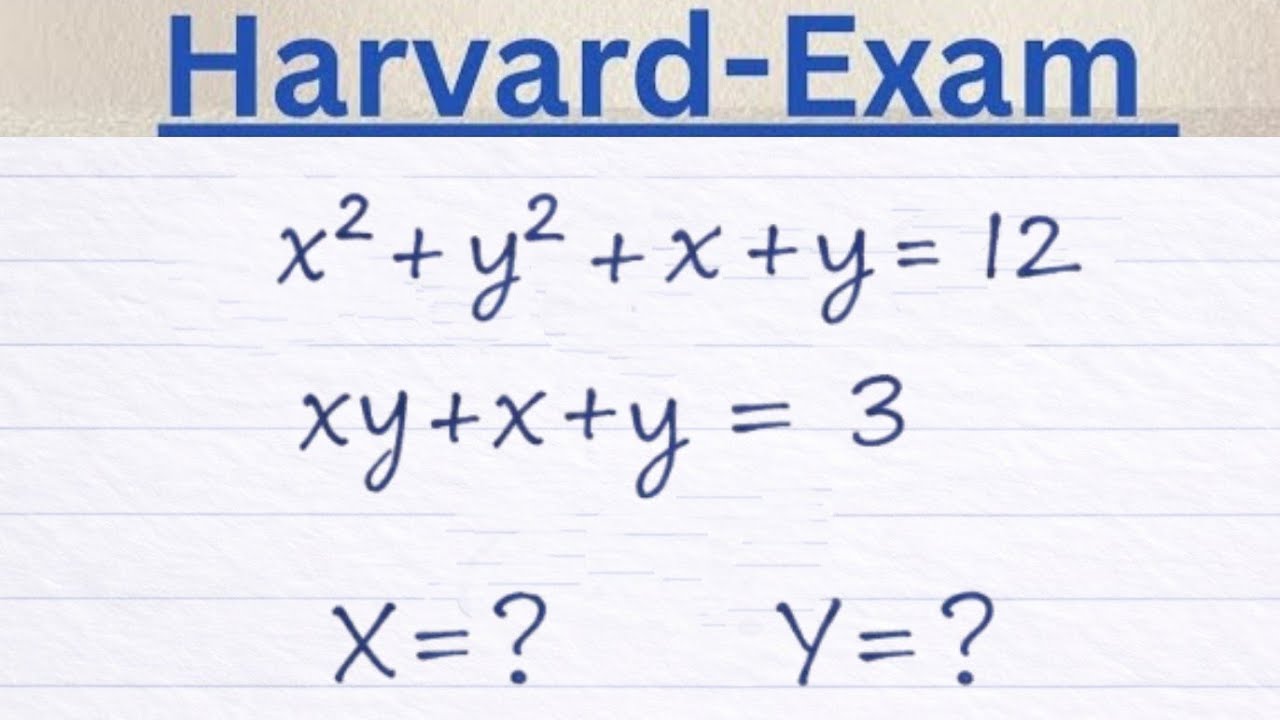 Harvard-Exam
x² + y² + x + y = 12
xy + x + y = 3
X = ? Y = ?